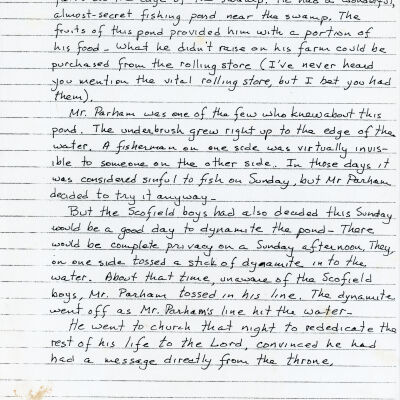 the edge of the swamp. He had a wonderful,
almost-secret fishing pond near the swamp. The
fruits of this pond provided him with a portion of
his food - what he didn't raise on his farm could be
purchased from the rolling store (I've never heard
you mention the vital rolling store, but I bet you had
them).
Mr. Parham was one of the few who knew about this
pond. The underbrush grew right up to the edge of the
water. A fisherman on one side was virtually invis-
ible to someone on the other side. In those days it
was considered sinful to fish on Sunday, but Mr Parham
decided to try it anyway-
But the Scofield boys had also decided this Sunday
would be a good day to dynamite the pond - There
would be complete privacy on a Sunday afternoon. They,
on one side tossed a stick of dynamite into the
water. About that time, unaware of the Scofield
boys, Mr. Parham tossed in his line. The dynamite
went off as Mr. Parham's line hit the water-
He went to church that night to rededicate the
rest of his life to the Lord, convinced he had
had a message directly from the throne.